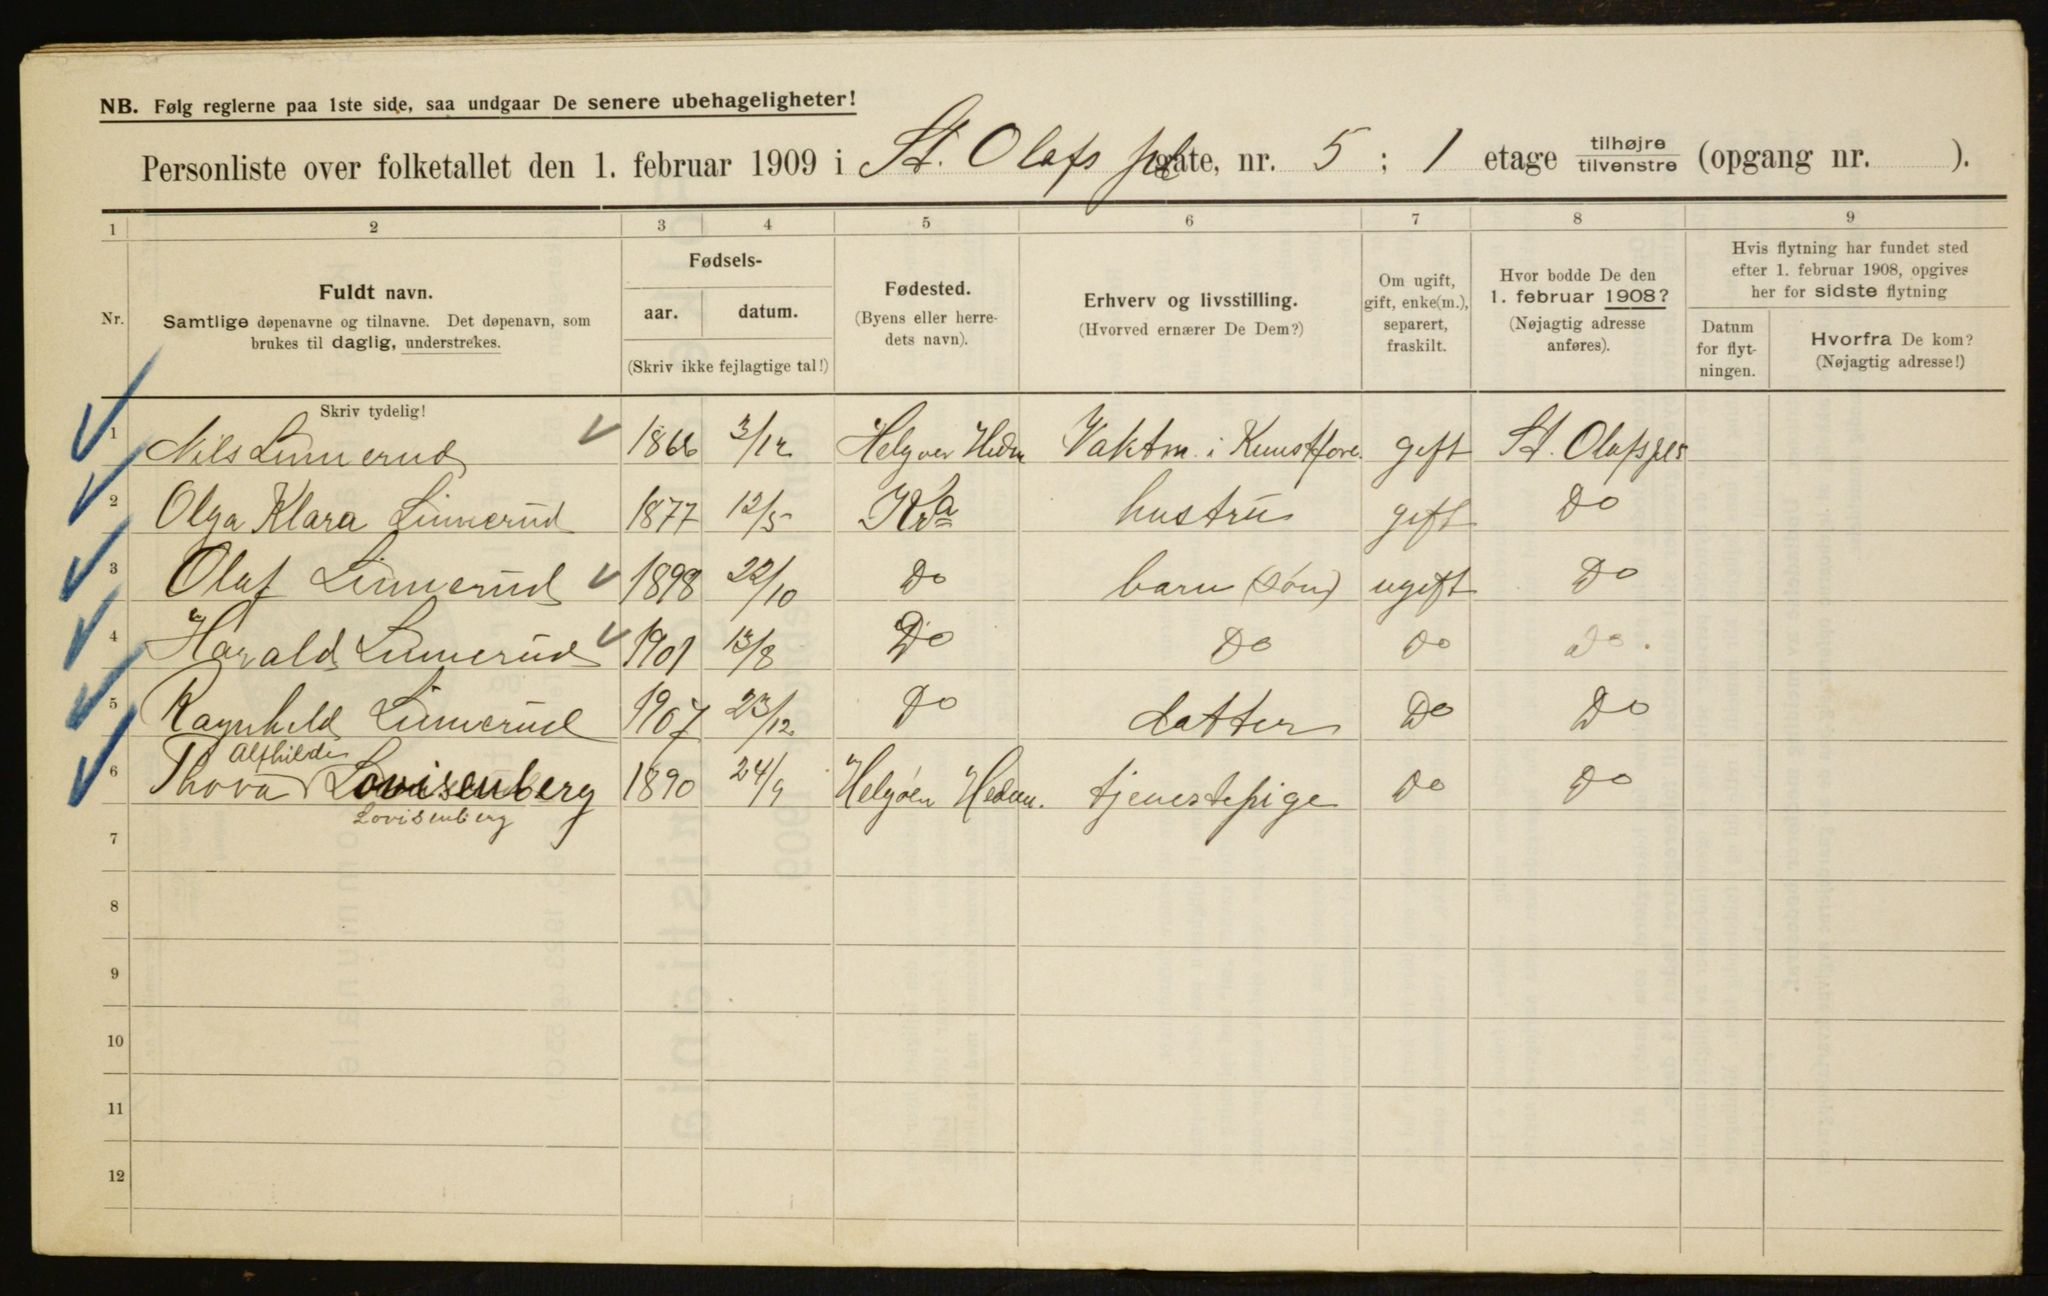 NB. Følg reglerne paa 1ste side, saa undgaar De senere ubehageligheter!
Personliste over folketallet den 1. februar 1909 i St. Olafs pl gate, nr. 5 ; 1 etage tilhøjre tilvenstre (opgang nr. ).
1 2 3 4 5 6 7 8 9
Nr.
Fuldt navn.
Samtlige døpenavne og tilnavne. Det døpenavn, som
brukes til daglig, understrekes.
Skriv tydelig!
Fødsels-
aar. datum.
(Skriv ikke fejlagtige tal!)
Fødested.
(Byens eller herre-
dets navn).
Erhverv og livsstilling.
(Hvorved ernærer De Dem?)
Om ugift,
gift, enke(m.),
separert,
fraskilt.
Hvor bodde De den
1. februar 1908?
(Nøjagtig adresse
anføres).
Hvis flytning har fundet sted
efter 1. februar 1908, opgives
her for sidste flytning
Datum
for flyt-
ningen.
Hvorfra De kom?
(Nøjagtig adresse!)
1 Nils Linnerud 1866 3/12 Helgøen Hedm Vaktm. i Kunstfore. gift St. Olafspl 5
2 Olga Klara Linnerud 1877 12/5 Kra hustru gift Do
3 Olaf Linnerud 1898 22/10 Do barn (søn) ugift Do
4 Harald Linnerud 1901 13/8 Do Do Do Do.
5 Ragnhild Linnerud 1907 23/12 Do datter Do Do
6 Thova Alfhilde Lovisenberg 1890 24/9 Helgøen Hedem. tjenestepige Do Do
Lovisenberg
7
8
9
10
11
12